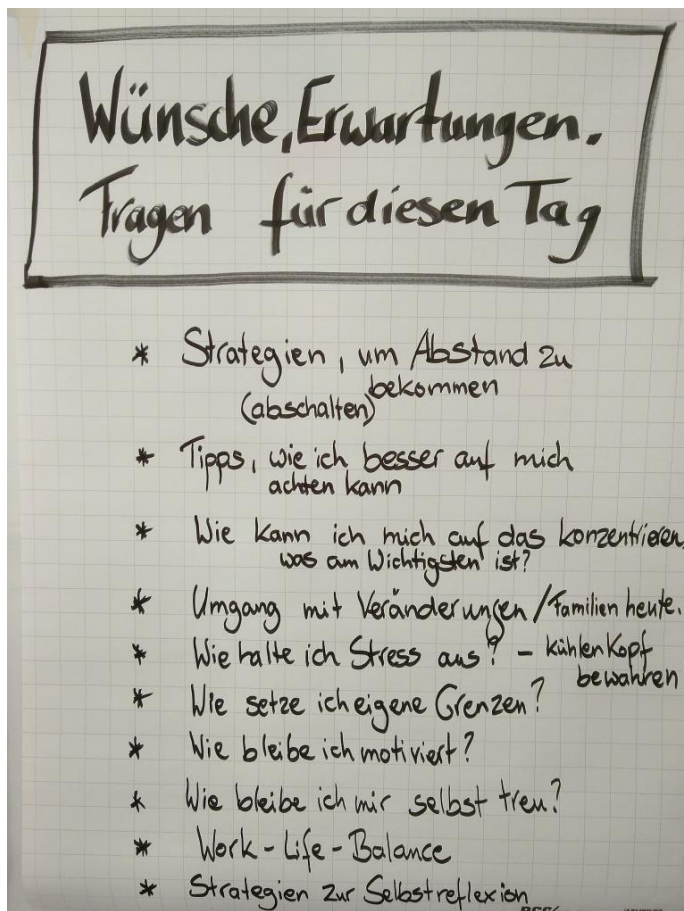 Wünsche, Erwartungen.
Fragen für diesen Tag
* Strategien, um Abstand zu
bekommen
(abschalten)
* Tipps, wie ich besser auf mich
achten kann
* Wie kann ich mich auf das konzentrieren,
was am Wichtigsten ist?
* Umgang mit Veränderungen / Familien heute.
* Wie halte ich Stress aus? - kühlen Kopf
bewahren
* Wie setze ich eigene Grenzen?
* Wie bleibe ich motiviert?
* Wie bleibe ich mir selbst treu?
* Work-Life-Balance
* Strategien zur Selbstreflexion